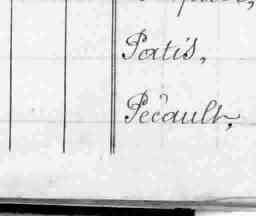 Patis,
Pécault,